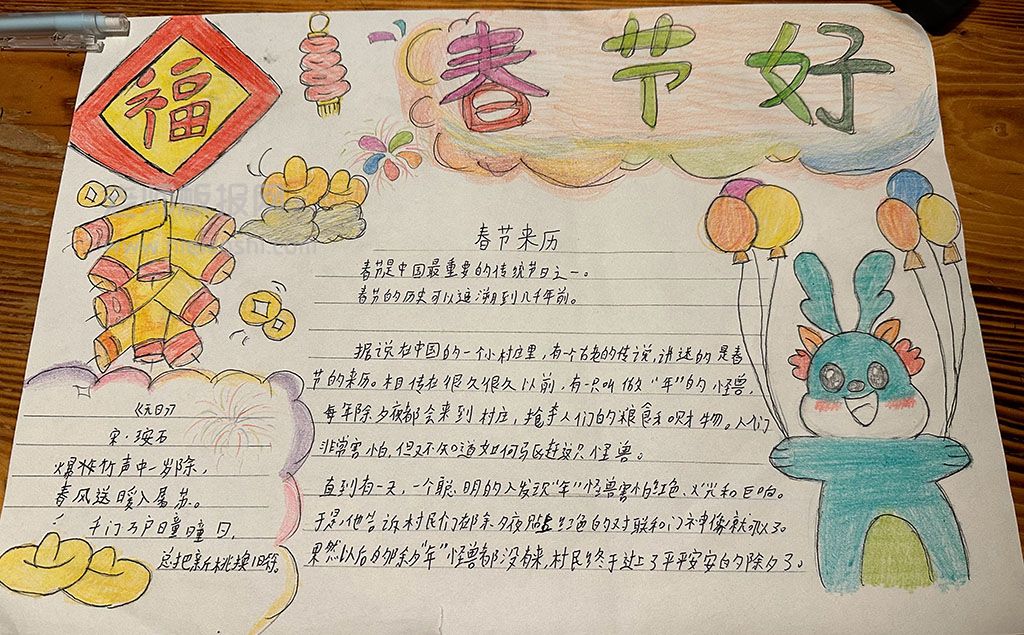 福
春节好
春节来历
春节是中国最重要的传统节日之一。
春节的历史可以追溯到几千年前。
据说在中国的一个小村庄里,有个古老的传说,讲述的是春
节的来历。相传在很久很久以前,有一只叫做“年”的怪兽,
每年除夕夜都会来到村庄,抢夺人们的粮食和财物。人们
非常害怕,但又不知道如何驱赶这只怪兽。
直到有一天,一个聪明的人发现“年”怪兽害怕红色、火光和巨响。
于是,他告诉村民们都除夕夜贴上红色的对联和门神像就可以了。
果然以后的除夕“年”怪兽都没有来,村民终于过上了平平安安的除夕了。
《元日》
宋·王安石
爆竹声中一岁除,
春风送暖入屠苏。
千门万户曈曈日,
总把新桃换旧符。